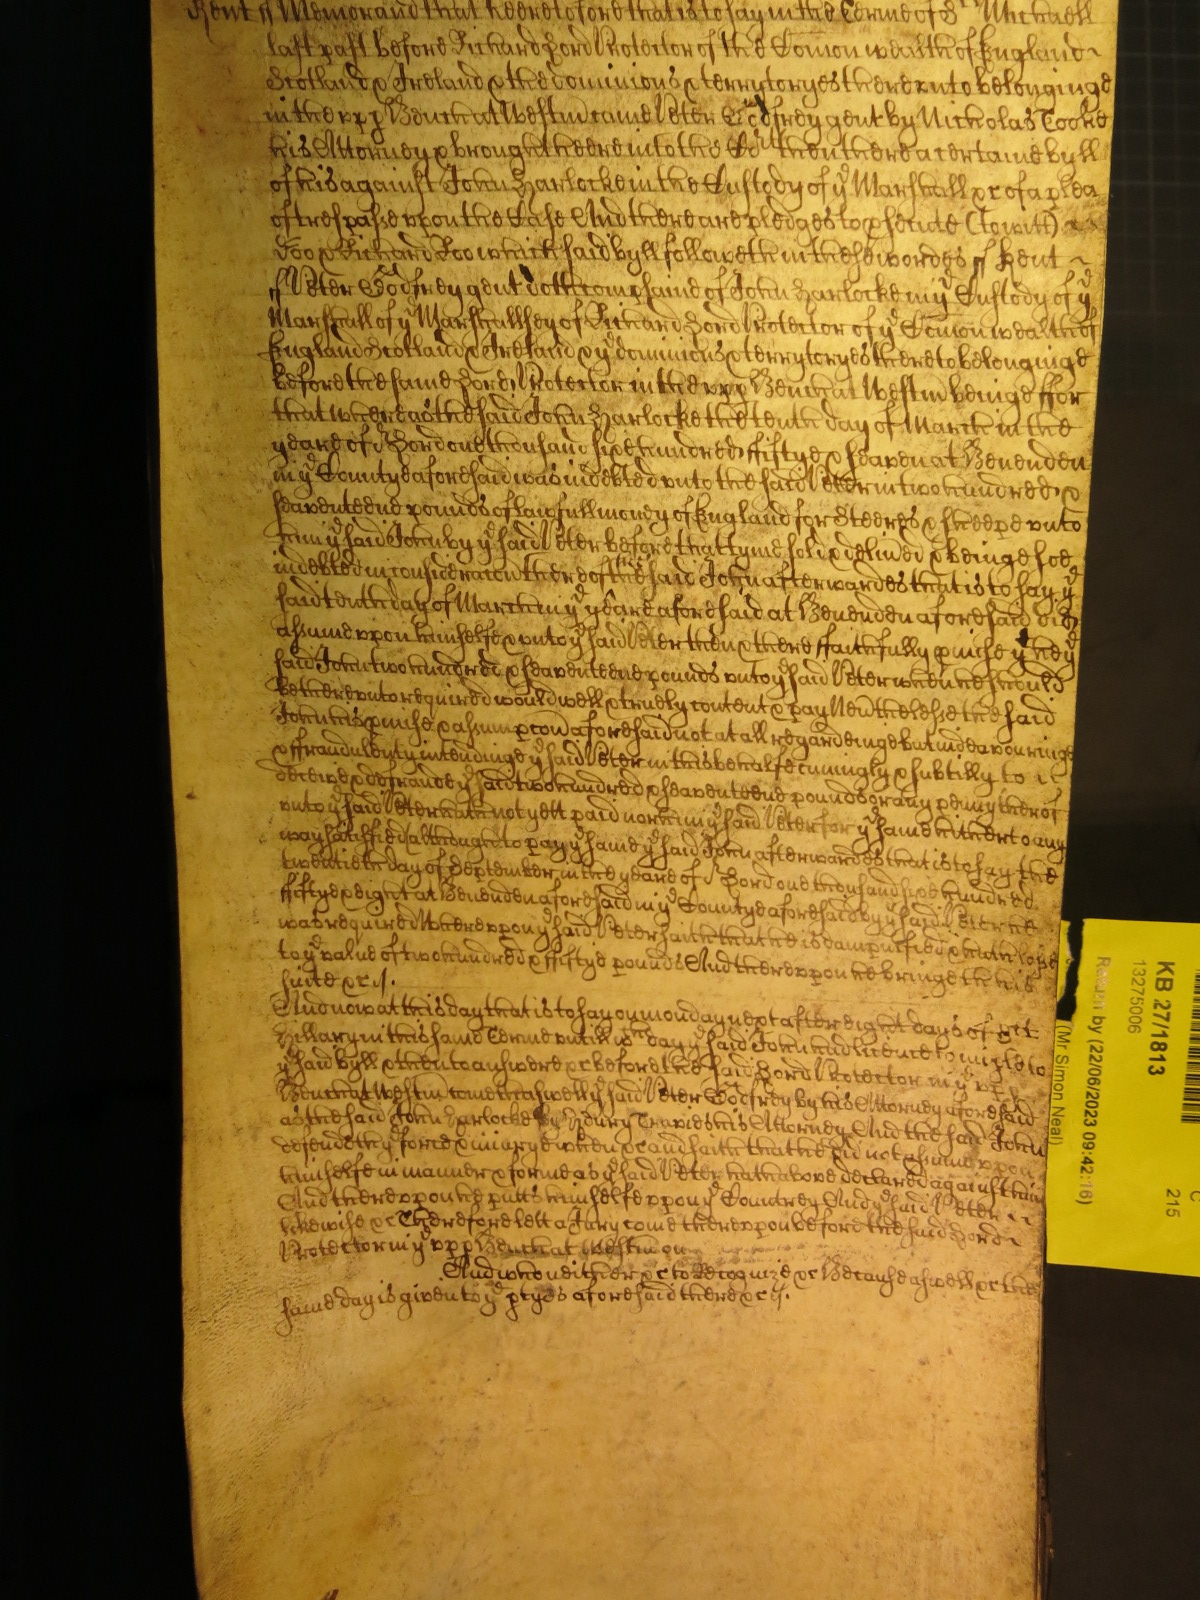 Kent ss Memorand that heeretofore that is to say in the Terme of St Michaell
last past before Richard Lord Protector of the Comon wealth of England
Scotland & Ireland & the dominions & terrytoryes thereunto belonginge
in the upp Bench at Westm came Peter Godfrey gent by Nicholas Tooke
his Attorney & brought heere into the Cort then there a certaine byll
of his against John Harlocke in the Custody of ye Marshall &c of a plea
of trespasse upon the Case And there are pledges to psecute (to witt)
Doo & Richard Roo which said byll followeth in these wordes ss Kent
ss Peter Godfrey gent doth complaine of John Harlocke in ye Custody of ye
Marshall of ye Marshallsey of Richard Lord Protector of ye Comon wealth of
England Scotland & Ireland & ye dominions & terrytoryes thereto belonginge
before the same Lord Protector in the upp Bench at Westm beinge ffor
that whereas the said John Harlocke the tenth day of March in the
yeare of or Lord one thousand sixe hundred fiftye & seaven at Benenden
in ye Countye aforesaid was indebted unto the said Peter in two hundred &
seaventeene pounds of lawfull money of England for Steeres & sheepe unto
him ye said John by ye said Peter before that tyme sold & delived & beinge soe
indebted in consideracon thereof the said John afterwardes that is to say ye
said tenth day of March in ye yeare aforesaid at Benenden aforesaid did
assume upon himselfe & unto ye said Peter then & there ffaithfully pmise yt hee ye
said John two hundred & seaventeene pounds unto ye said Peter when he should
be thereunto required would well & truely content & pay Nevthelesse the said
John his pmise & assumpcon aforesaid not at all regardeinge but indeavouringe
& ffraudulently intendinge ye said Peter in this behalfe cuningly & subtilly to
deceive & defraude ye said two hundred & seaventeene pounds or any penny thereof
unto ye said Peter hath not yett paid nor him ye said Peter for ye same hitherto any
way satisfied (although to pay ye same ye said John afterwardes that is to say the
twentieth day of September in the yeare of or Lord one thousand sixe hundred
fiftye & eight at Benenden aforesaid in ye Countye aforesaid by ye said Peter he
was required) Whereupon ye said Peter saith that he is dampnified & hath losse
to ye value of two hundred & fiftye pounds And thereupon he bringeth his
suite &c
And now at this day that is to say on monday next after eight dayes of St
Hillary in this same Terme untill wch day ye said John had licence to imple to
ye said byll & then to answere &c before the said Lord Protector in ye upp
Bench at Westm cometh aswell ye said Peter Godfrey by his Attorney aforesaid
as the said John Harlocke by Henry Travies his Attorney And the said John
defendeth ye force & iniurye when &c and saith that he did not assume upon
himselfe in manner & forme as ye said Peter hath above declared against him
And thereupon he putts himselfe upon ye Countrey And ye said Peter
likewise &c Therefore lett a Jury come thereupon before the said Lord
Protector in ye upp Bench at Westm on
And who neither &c to Recognize &c Because aswell &c the
same day is given to ye ptyes aforesaid there &c
KB 27/1813
13275006
Return by (22/06/2023 09:42:16)
(Mr Simon Neal)
C
215